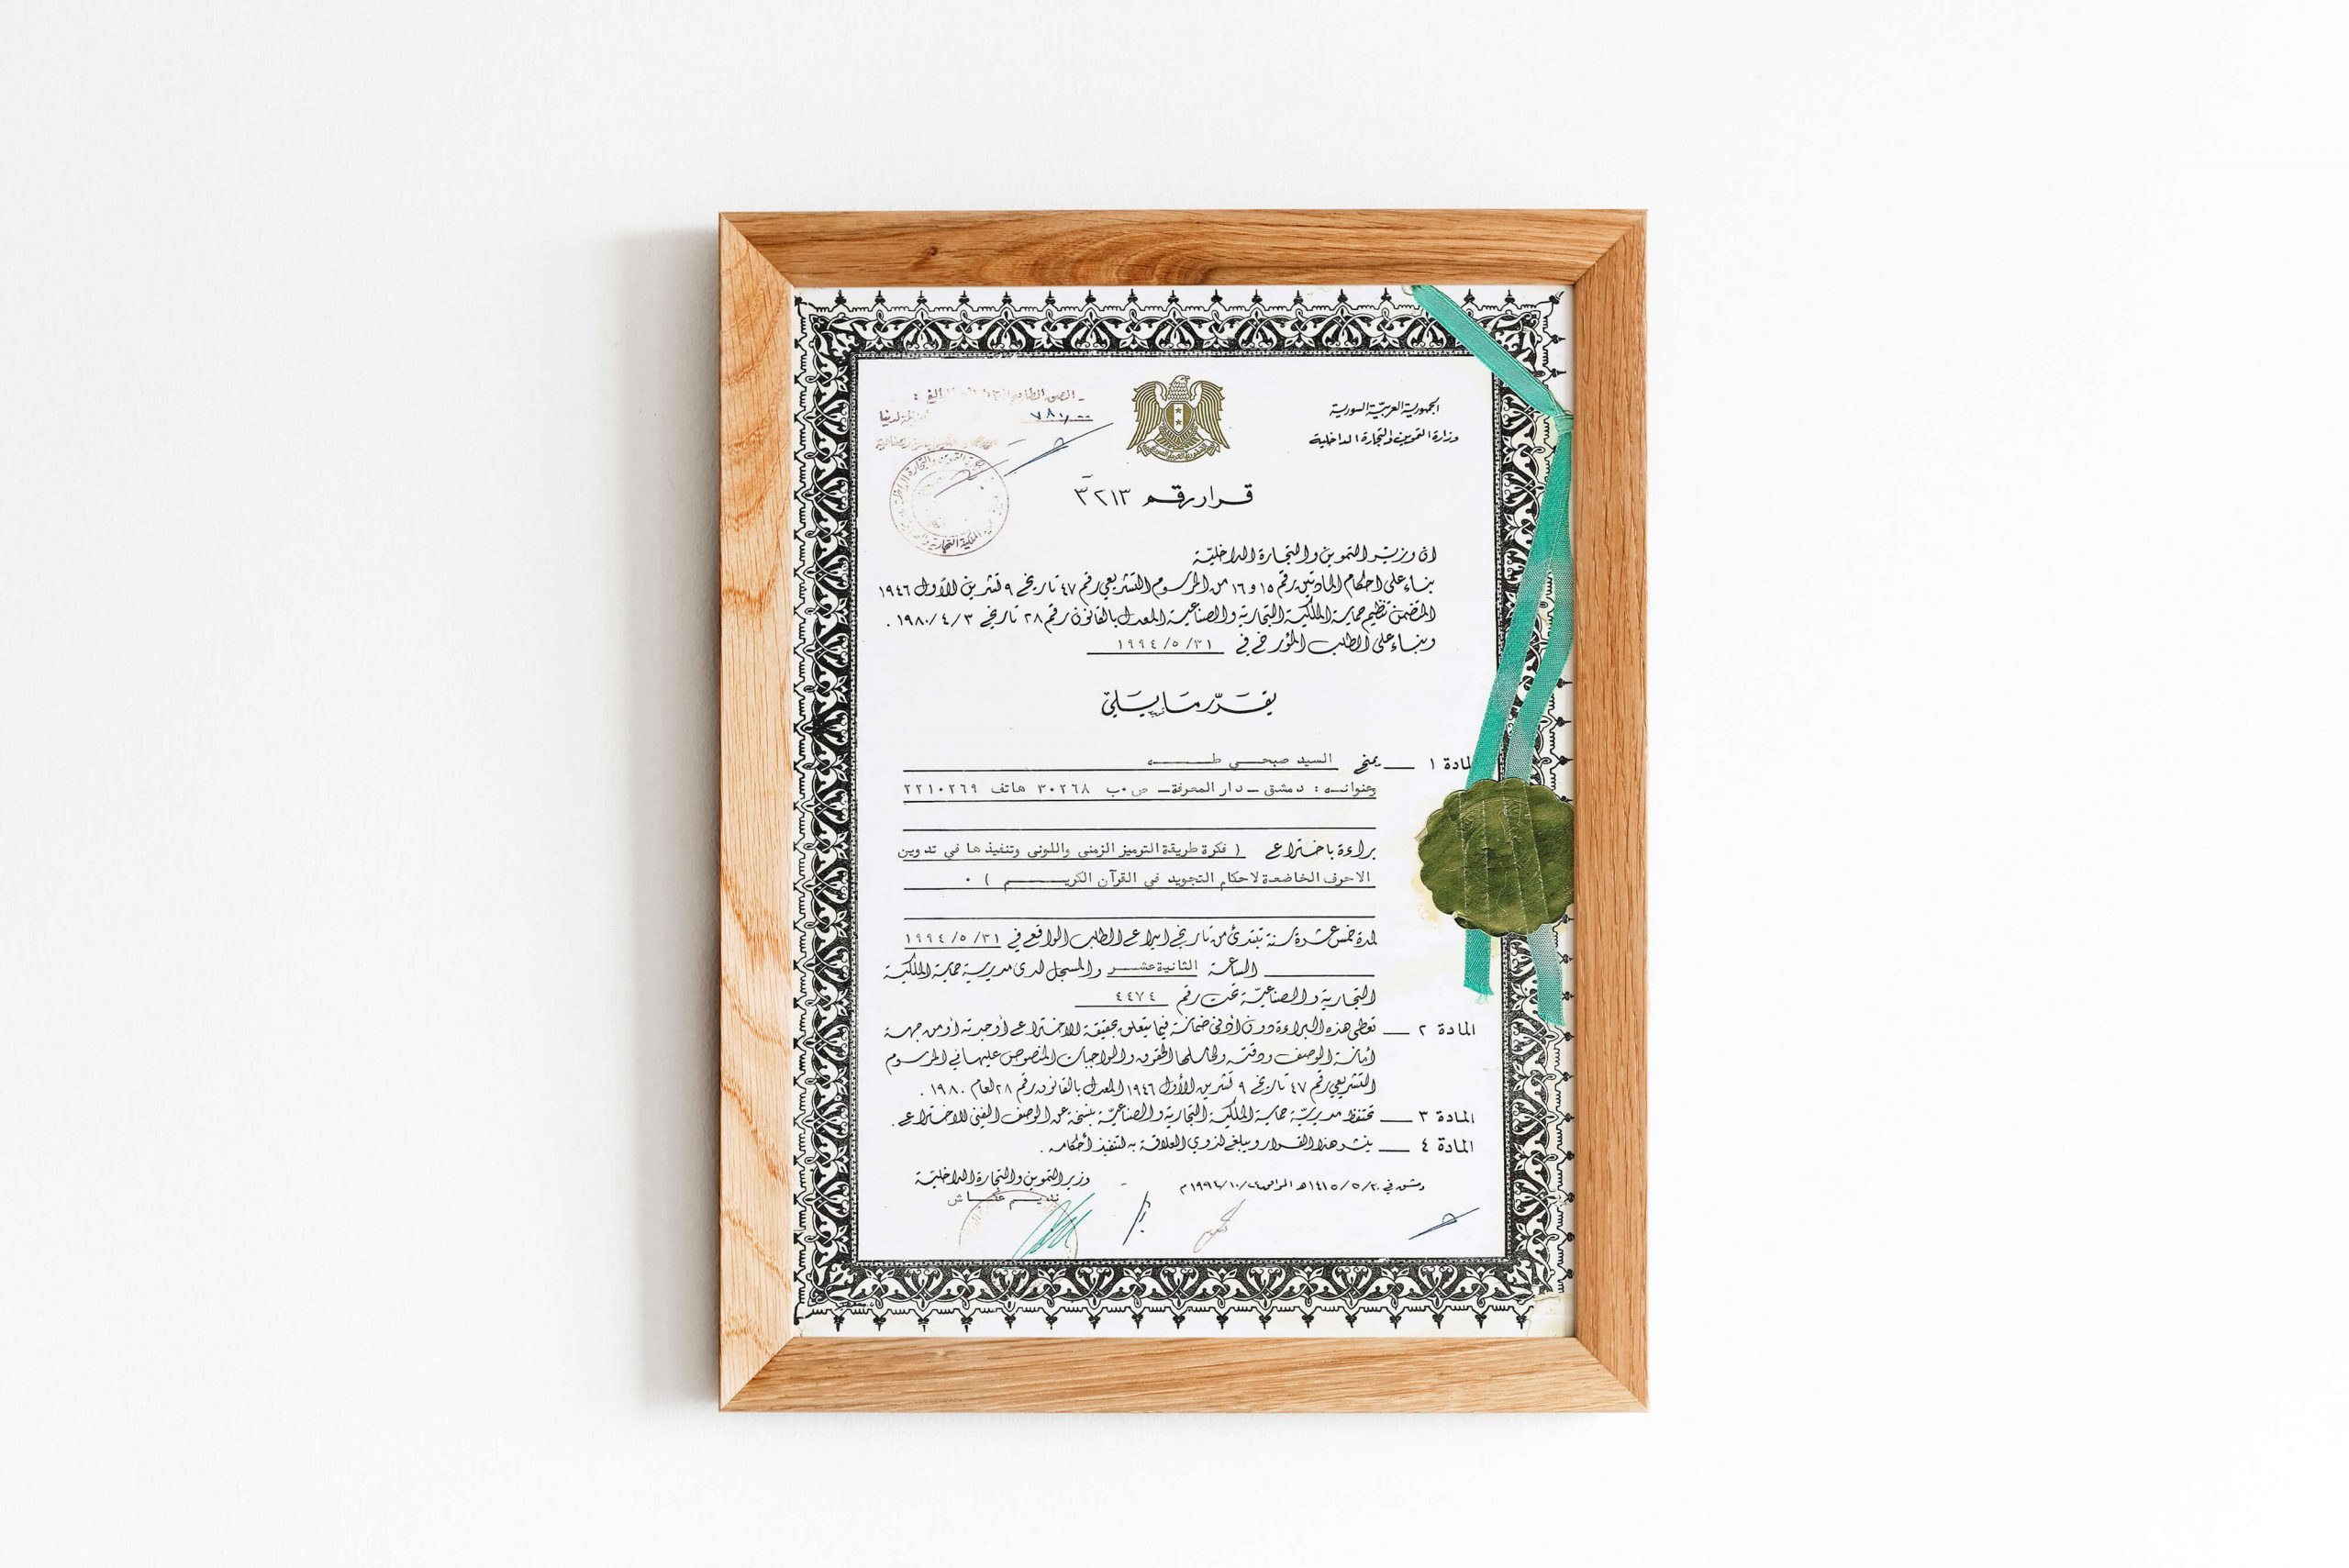 الجمهورية العربية السورية
وزارة التموين والتجارة الداخلية
قرار رقم ٣٢١٣
ان وزير التموين والتجارة الداخلية
بناء على احكام المادتين رقم ١٥ و ١٦ من المرسوم التشريعي رقم ٤٧ تاريخ ٩ تشرين الأول ١٩٤٦
المتضمن تنظيم حماية الملكية التجارية والصناعية المعدل بالقانون رقم ٢٨ تاريخ ١٩٨٠/٤/٣ .
وبناء على الطلب المؤرخ في ١٩٩٤/٥/٣١
يقرر ما يلي
المادة ١ — يمنح السيد صبحي طه
وعنوانه : دمشق - دار المعرفة - ص.ب ٣٠٢٦٨ هاتف ٢٢١٠٢٦٩
براءة باختراع ( فكرة طريقة الترميز الزمني واللوني وتنفيذها في تدوين
الاحرف الخاضعة لاحكام التجويد في القرآن الكريم ) .
لمدة خمس عشرة سنة تبتدئ من تاريخ ايداع الطلب الواقع في ١٩٩٤/٥/٣١
الساعة الثانية عشر والمسجل لدى مديرية حماية الملكية
التجارية والصناعية تحت رقم ٤٤٧٤
المادة ٢ — تعطى هذه البراءة دون أدنى ضمانة فيما يتعلق بحقيقة الاختراع أو جدته أو من جهة
أمانة الوصف ودقته ولحاملها الحقوق والواجبات المنصوص عليها في المرسوم
التشريعي رقم ٤٧ تاريخ ٩ تشرين الأول ١٩٤٦ المعدل بالقانون رقم ٢٨ لعام ١٩٨٠ .
المادة ٣ — تحتفظ مديرية حماية الملكية التجارية والصناعية بنسخة عن الوصف الفني للاختراع .
المادة ٤ — ينشر هذا القرار ويبلغ لذوي العلاقة به لتنفيذ أحكامه .
دمشق في ١٤١٥/٥/٢٠ هـ الموافق ١٩٩٤/١٠/٢٤ م
وزير التموين والتجارة الداخلية
نديم عكاش